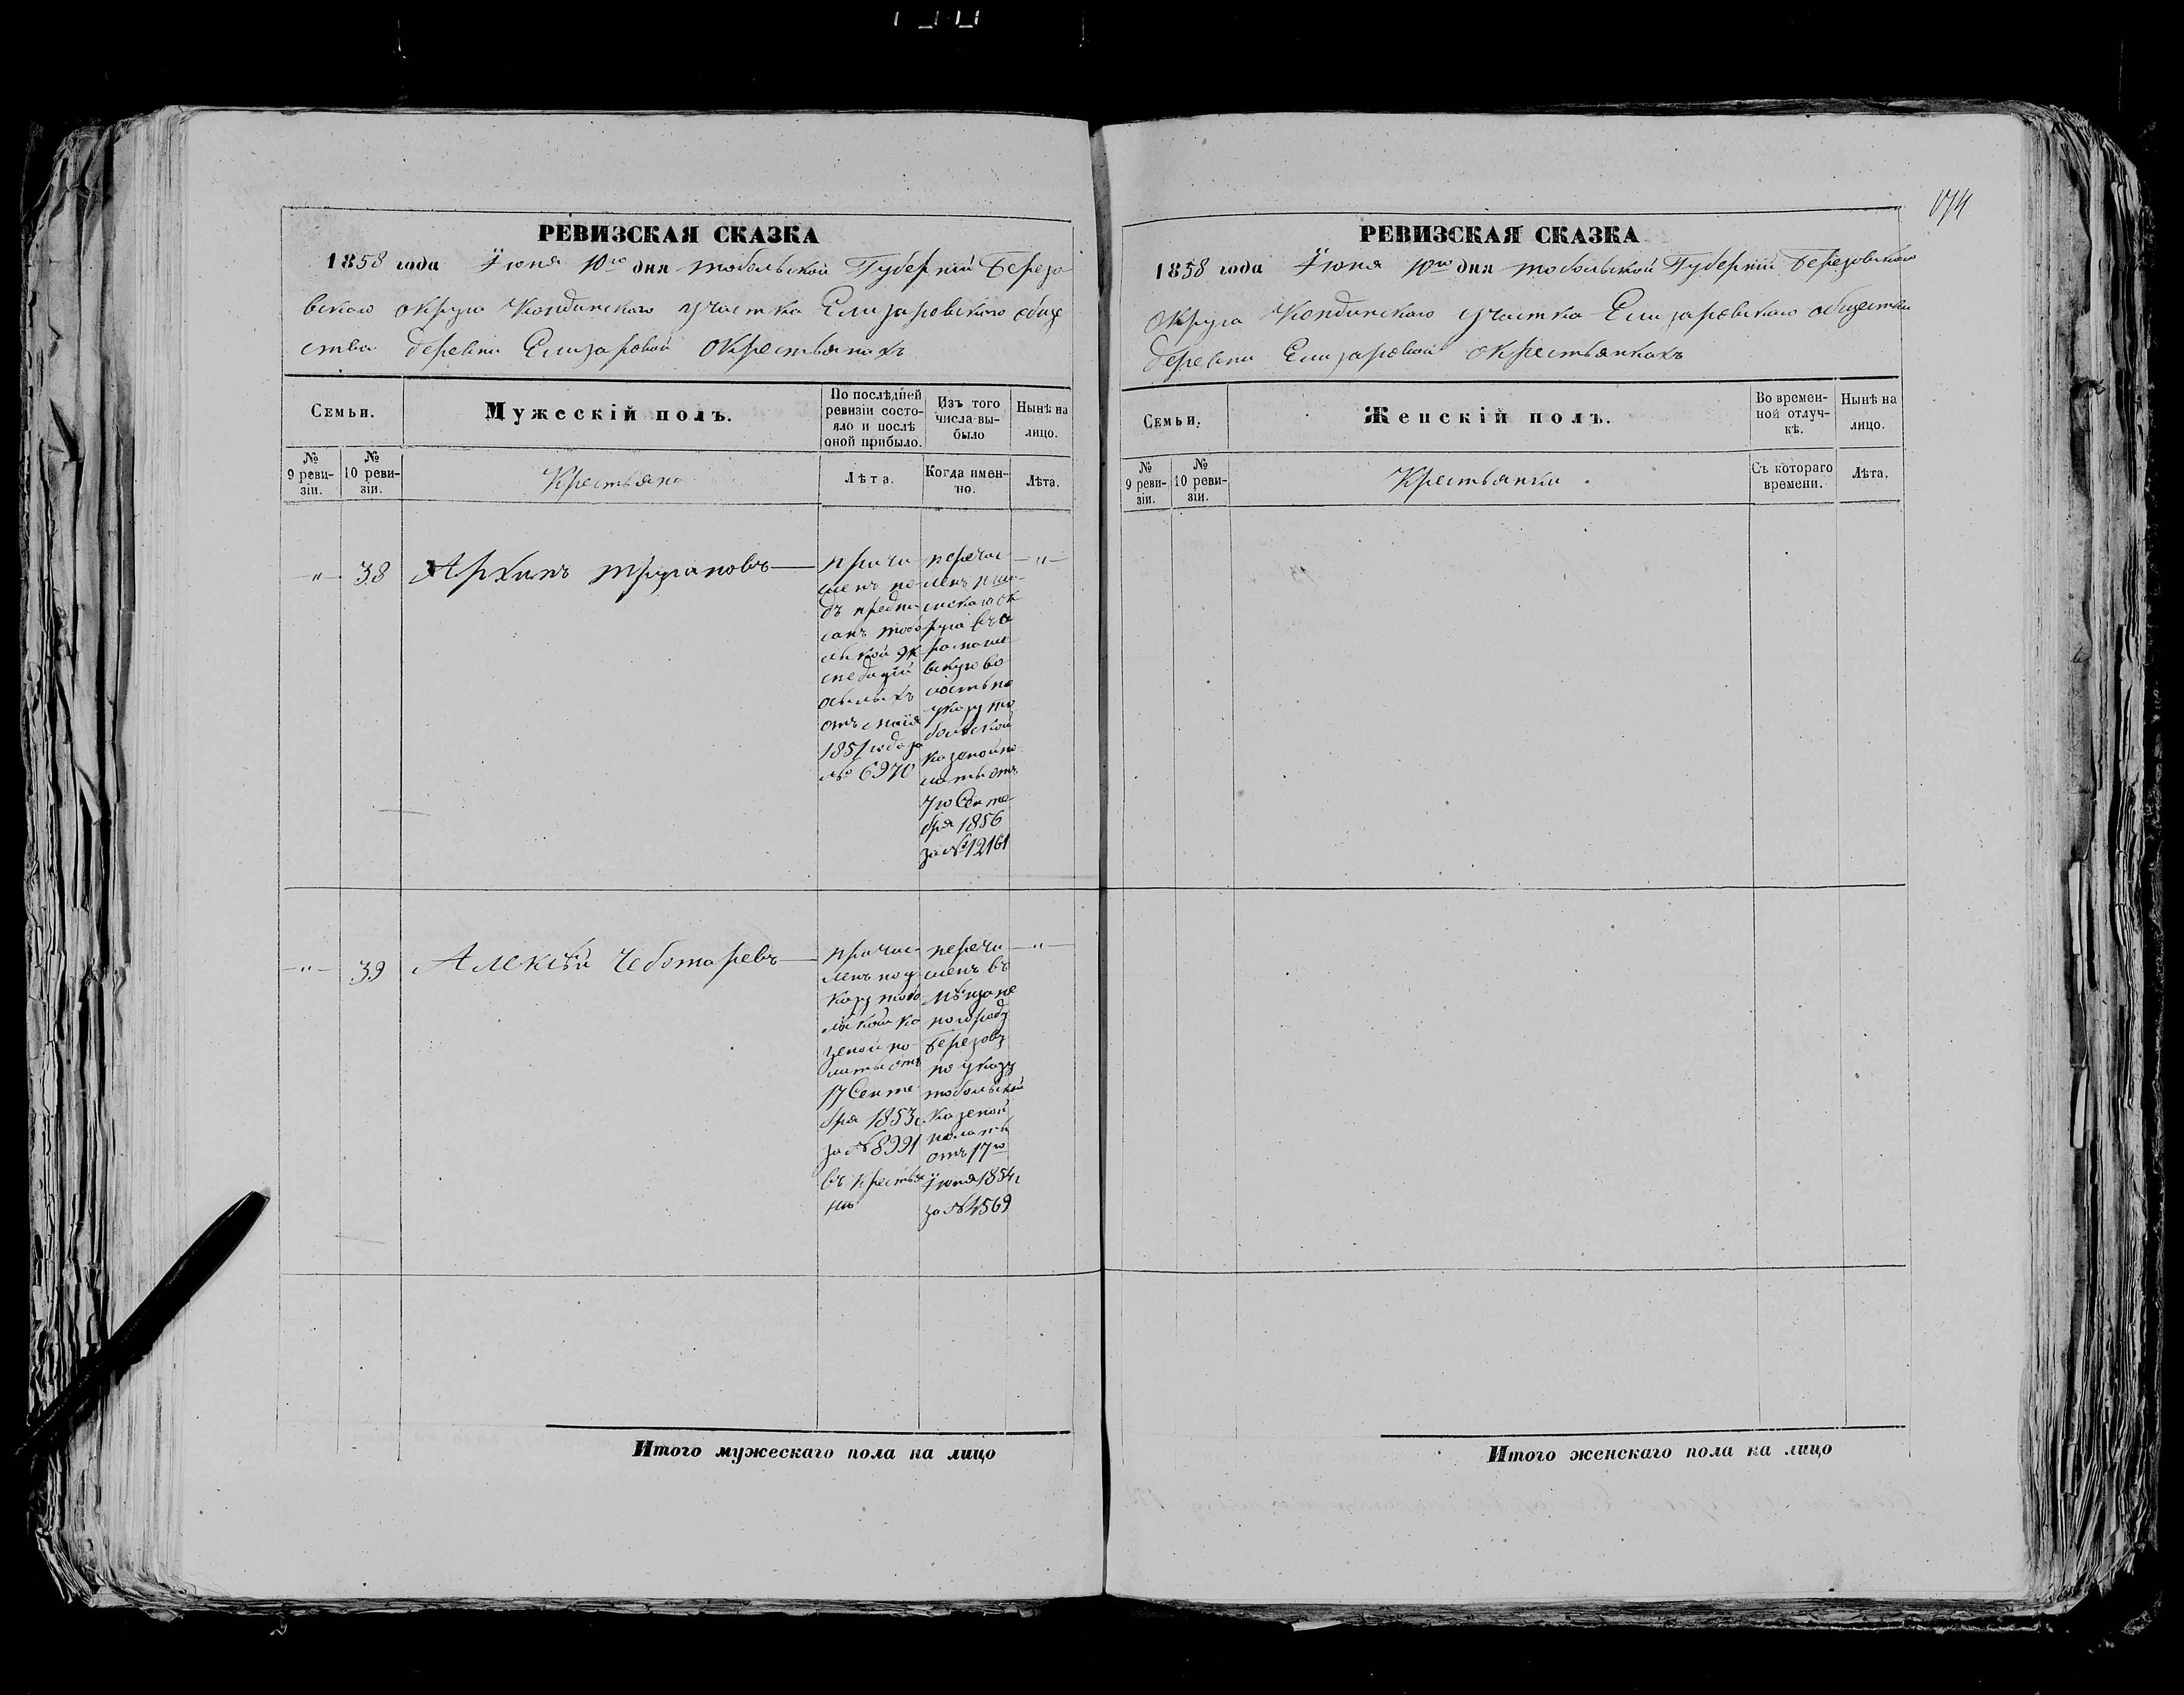 174
РЕВИЗСКАЯ СКАЗКА
1858 года Іюня 10го дня тобольской Губерніи Березо
вскаго округа Кондинскаго участка Елизаровскаго обще
ства деревни Елизаровой окрестьянахъ
Семьи.
Мужескій полъ.
По послѣдней ревизіи состояло и послѣ оной прибыло.
Изъ того числа выбыло
Нынѣ на лицо.
№ 9 ревизіи.
№ 10 ревизіи.
Крестьяне
Лѣта.
Когда именно.
Лѣта.
„ 38 Архипъ
причи
сленъ по
дъ предпи
санъ тобо
льской эк
спедиціи
осылыхъ
отъ мая
1851 года за
№ 6970
перечис
ленъ
скаго ок
руга въ
вскую во
лость по
указу то
больской
казеной по
латы отъ
7го Сентя
бря 1856
за № 12161
„
„ 39 Алексѣй Чеботаревъ
причис
ленъ по у
казу тобо
льской ка
зеной по
латы отъ
17 Сентя
бря 1853г.
за № 8991
въ крестья
не
перечи
сленъ въ
мѣщане
по городу
Березову
по указу
тобольской
казеной
полаты
отъ 17го
Іюня 1854г
за № 4569
„
Итого мужескаго пола на лицо
РЕВИЗСКАЯ СКАЗКА
1858 года Іюня 10го дня тобольской Губерніи Березовскаго
округа Кондинскаго участка Елизаровскаго общества
деревни Елизаровой окрестьянкахъ
Семьи.
Женскій полъ.
Во временной отлучкѣ.
Нынѣ на лицо.
№ 9 ревизіи.
№ 10 ревизіи.
Крестьянки
Съ котораго времени.
Лѣта.
Итого женскаго пола на лицо